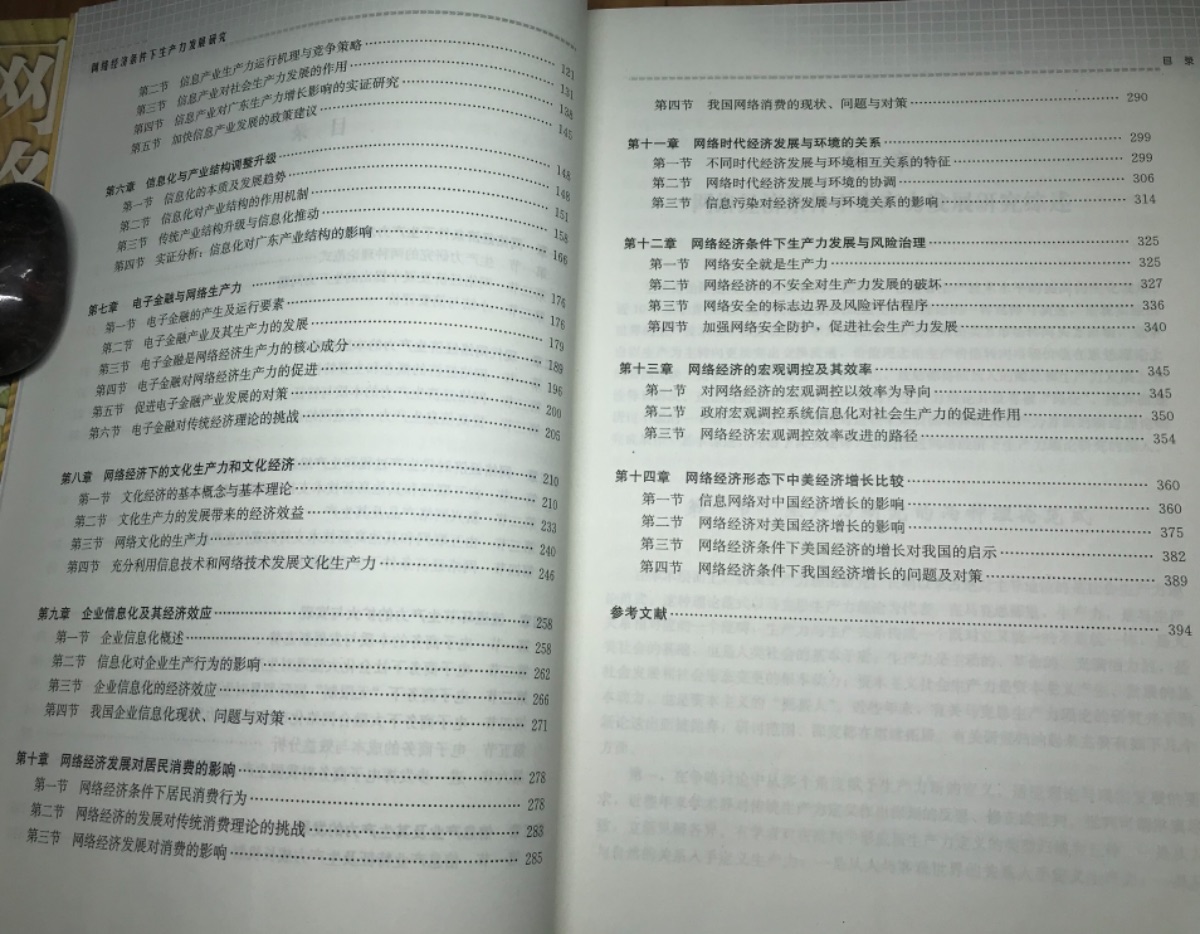 网络经济条件下生产力发展研究
第二节 信息产业生产力运行机理与竞争策略 121
第三节 信息产业对社会生产力发展的作用 131
第四节 信息产业对广东生产力增长影响的实证研究 138
第五节 加快信息产业发展的政策建议 145
第六章 信息化与产业结构调整升级 148
第一节 信息化的本质及发展趋势 148
第二节 信息化对产业结构的作用机制 151
第三节 传统产业结构升级与信息化推动 158
第四节 实证分析:信息化对广东产业结构的影响 166
第七章 电子金融与网络生产力 176
第一节 电子金融的产生及运行要素 176
第二节 电子金融产业及其生产力的发展 179
第三节 电子金融是网络经济生产力的核心成分 189
第四节 电子金融对网络经济生产力的促进 196
第五节 促进电子金融产业发展的对策 200
第六节 电子金融对传统经济理论的挑战 205
第八章 网络经济下的文化生产力和文化经济 210
第一节 文化经济的基本概念与基本理论 210
第二节 文化生产力的发展带来的经济效益 233
第三节 网络文化的生产力 240
第四节 充分利用信息技术和网络技术发展文化生产力 246
第九章 企业信息化及其经济效应 258
第一节 企业信息化概述 258
第二节 信息化对企业生产行为的影响 262
第三节 企业信息化的经济效应 266
第四节 我国企业信息化现状、问题与对策 271
第十章 网络经济发展对居民消费的影响 278
第一节 网络经济条件下居民消费行为 278
第二节 网络经济的发展对传统消费理论的挑战 283
第三节 网络经济发展对消费的影响 285
目 录
第四节 我国网络消费的现状、问题与对策 290
第十一章 网络时代经济发展与环境的关系 299
第一节 不同时代经济发展与环境相互关系的特征 299
第二节 网络时代经济发展与环境的协调 306
第三节 信息污染对经济发展与环境关系的影响 314
第十二章 网络经济条件下生产力发展与风险治理 325
第一节 网络安全就是生产力 325
第二节 网络经济的不安全对生产力发展的破坏 327
第三节 网络安全的标志边界及风险评估程序 336
第四节 加强网络安全防护,促进社会生产力发展 340
第十三章 网络经济的宏观调控及其效率 345
第一节 对网络经济的宏观调控以效率为导向 345
第二节 政府宏观调控系统信息化对社会生产力的促进作用 350
第三节 网络经济宏观调控效率改进的路径 354
第十四章 网络经济形态下中美经济增长比较 360
第一节 信息网络对中国经济增长的影响 360
第二节 网络经济对美国经济增长的影响 375
第三节 网络经济条件下美国经济的增长对我国的启示 382
第四节 网络经济条件下我国经济增长的问题及对策 389
参考文献 394